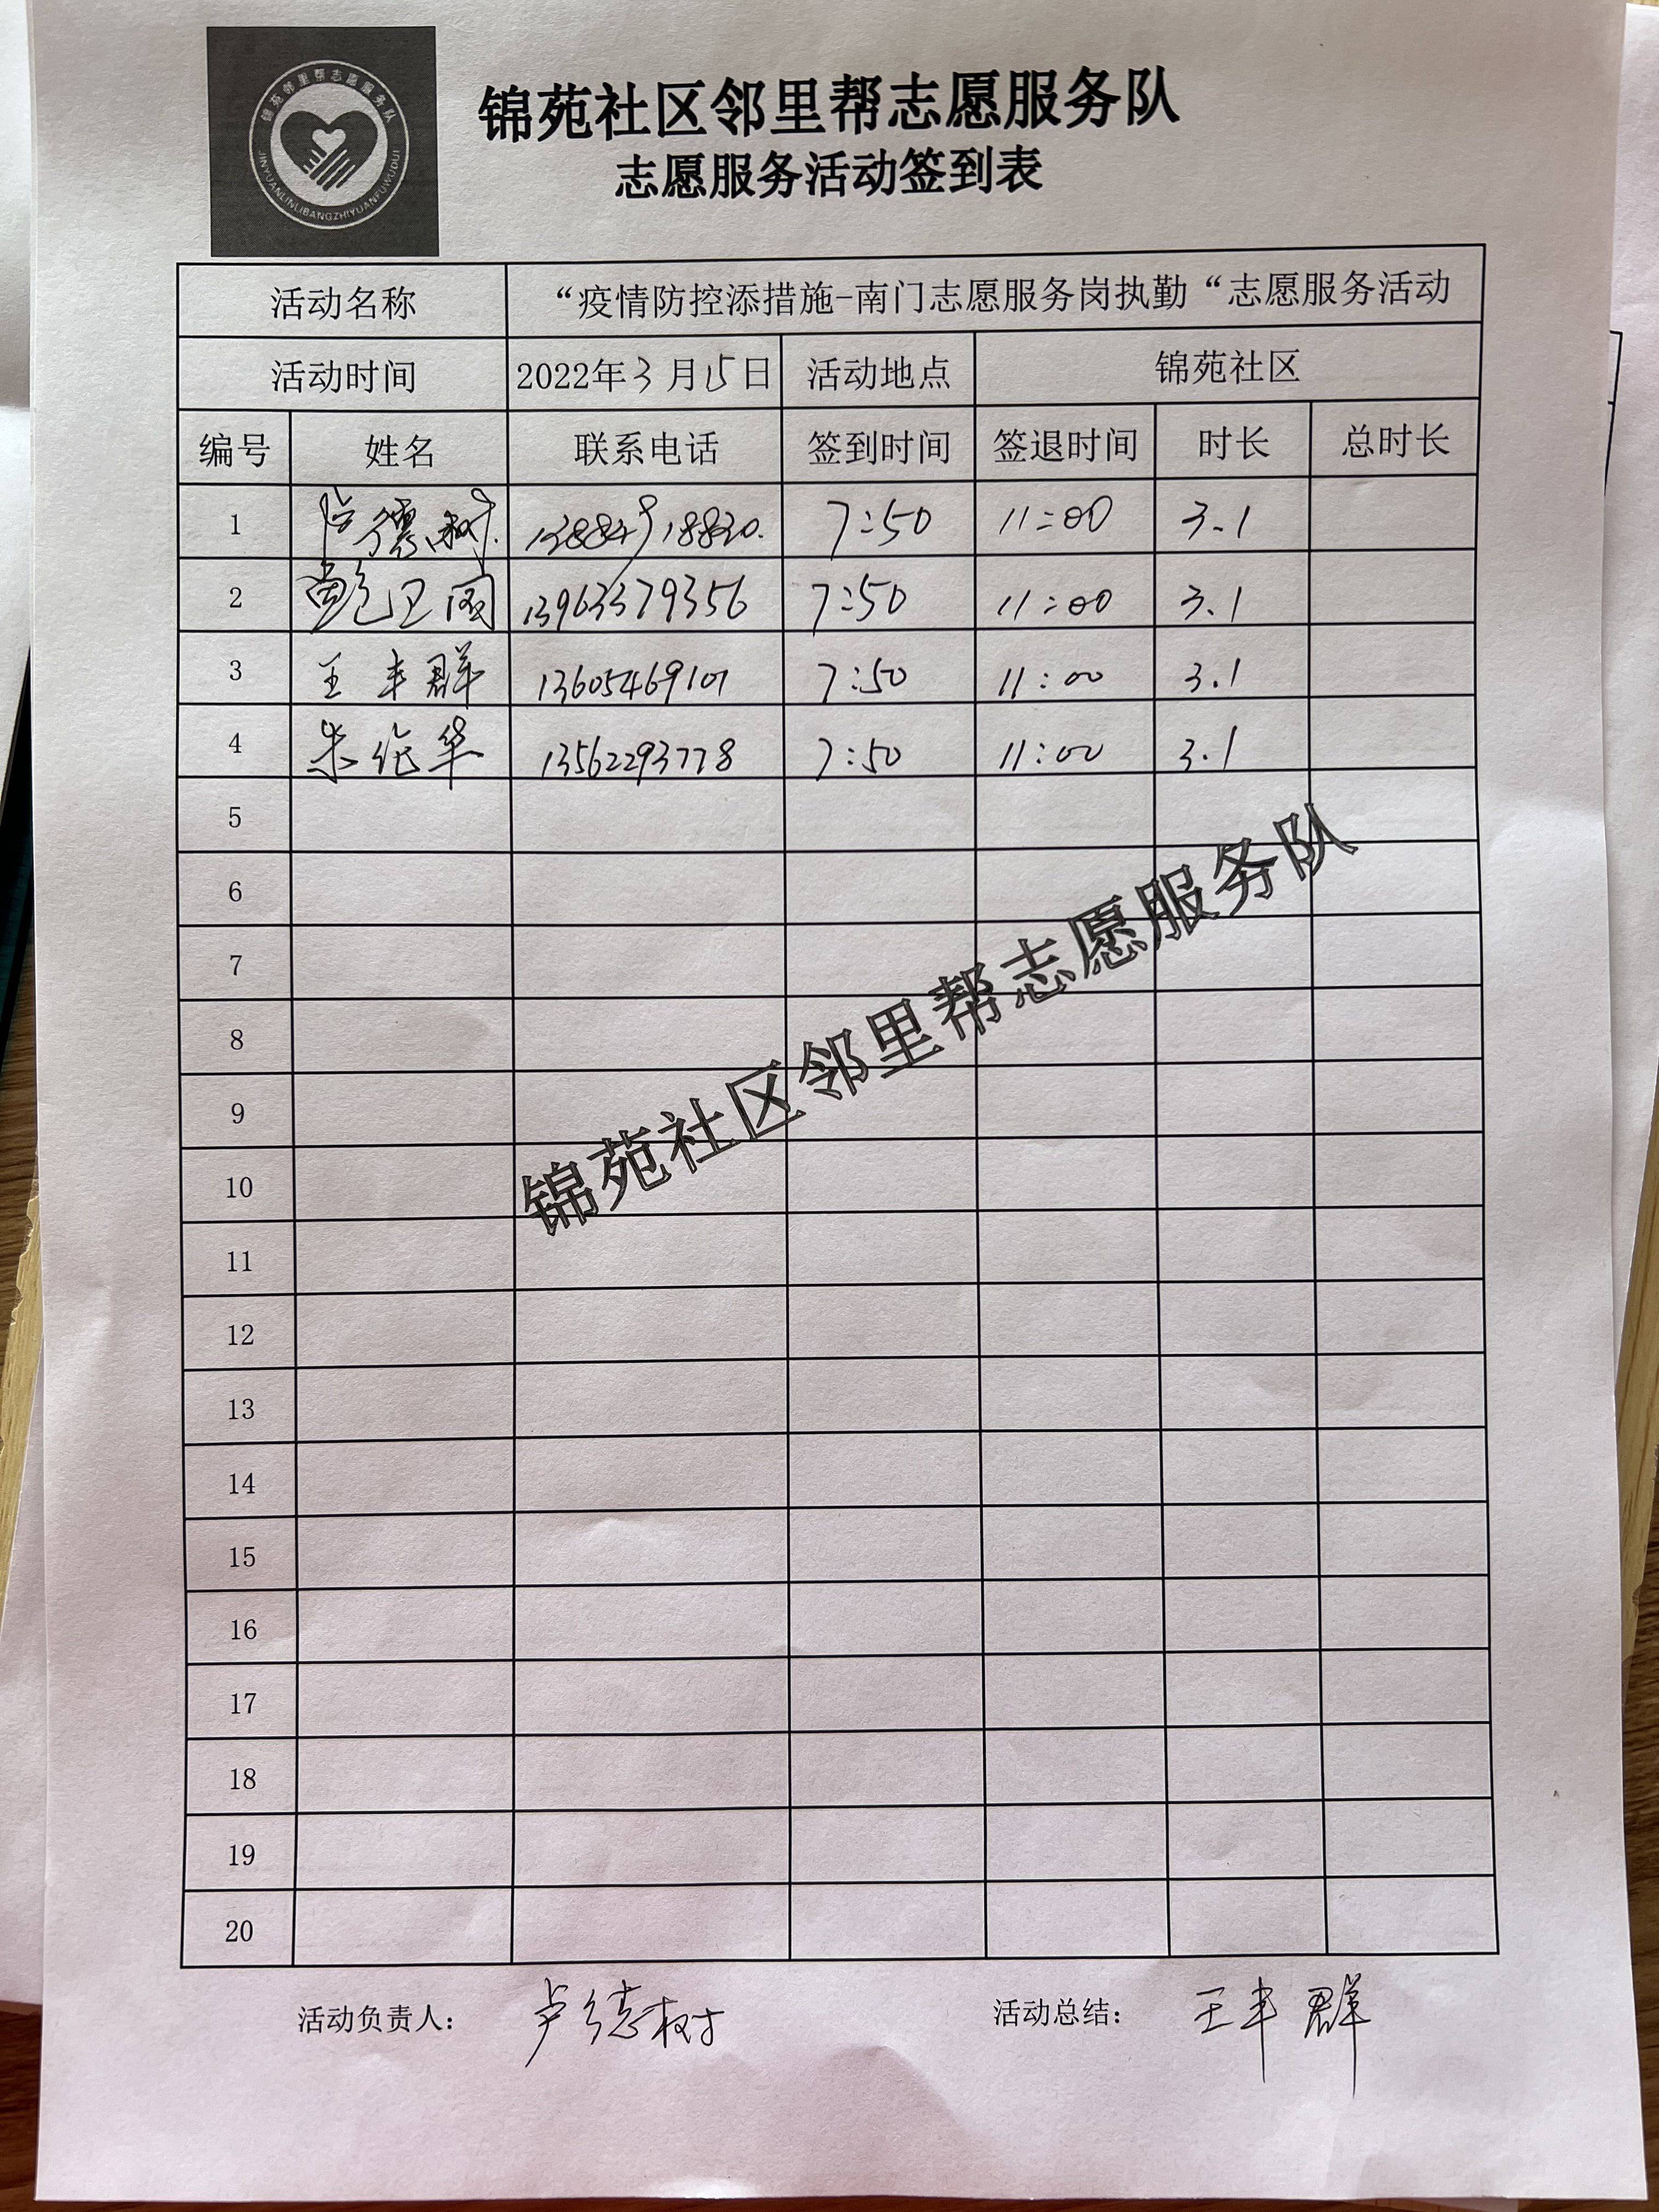 锦苑邻里帮志愿服务队
JINYUANLINLIBANGZHIYUANFUWUDUI
锦苑社区邻里帮志愿服务队
志愿服务活动签到表
活动名称 “疫情防控添措施-南门志愿服务岗执勤“志愿服务活动
活动时间 2022年3月15日 活动地点 锦苑社区
编号 姓名 联系电话 签到时间 签退时间 时长 总时长
1 卢德树 7:50 11:00 3.1
2 鲍卫国 13963379356 7:50 11:00 3.1
3 王丰群 13605469101 7:50 11:00 3.1
4 朱维华 13562293778 7:50 11:00 3.1
5
6
7
8
9
10
11
12
13
14
15
16
17
18
19
20
锦苑社区邻里帮志愿服务队
活动负责人: 卢德树 活动总结: 王丰群